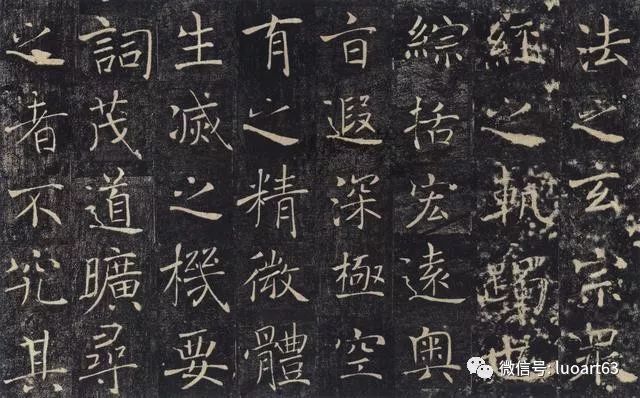 法之玄宗衆
經之軌躅也
綜括宏遠奥
旨遐深極空
有之精微體
生滅之機要
詞茂道曠尋
之者不究其
微信号: luoart63